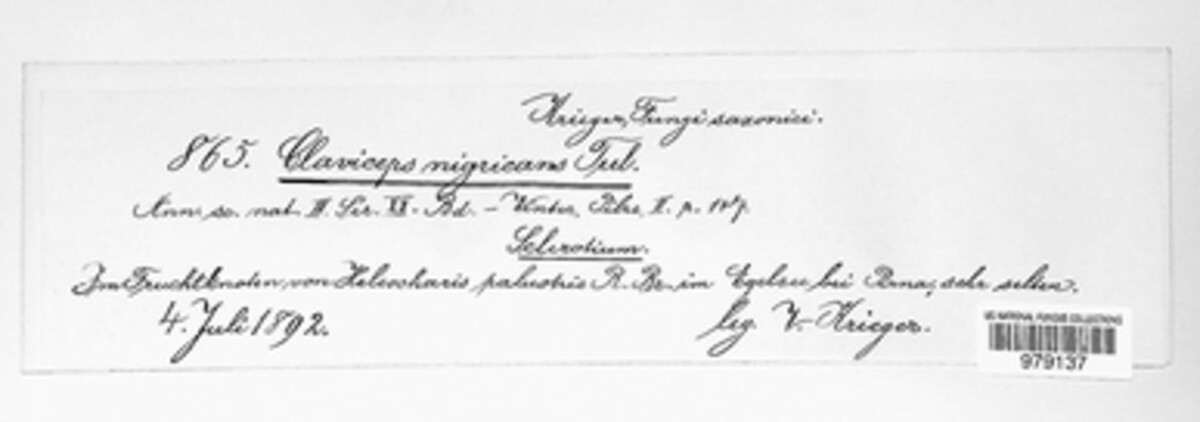 Krieger, Fungi saxonici.
865. Claviceps nigricans Tul.
Ann. sc. nat. III. Ser. XX. Bd. – Winter, Pilze, II. p.
Sclerotium.
Im Fruchtknoten von Heleocharis palustris R. Br. im Egelsee bei Pirna, sehr selten.
4. Juli 1892.
leg. W. Krieger.
US NATIONAL FUNGUS COLLECTIONS
979137